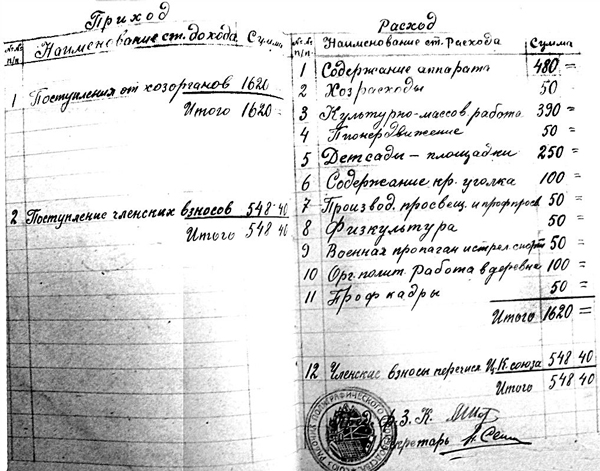 Приход
№№ п/п Наименование ст. дохода Сумма
1 Поступления от хозорганов 1620
Итого 1620
2 Поступление членских взносов 548 40
Итого 548 40
Расход
№№ п/п Наименование ст. Расхода Сумма
1 Содержание аппарата 480 =
2 Хозрасходы 50
3 Культурно-массов. работа 390 =
4 Пионердвижение 50 =
5 Детсады – площадки 250 =
6 Содержание кр. уголка 100 =
7 Производ. просвещ. и профпросв 50 =
8 Физкультура 50 =
9 Военная пропаган и стрел. спорт 50 =
10 Орг. полит. Работа в деревне 100 =
11 Проф кадры 50 =
Итого 1620 =
12 Членские взносы перечисл Ц.К. союза 548 40
Итого 548 40
З. К.
Секретарь